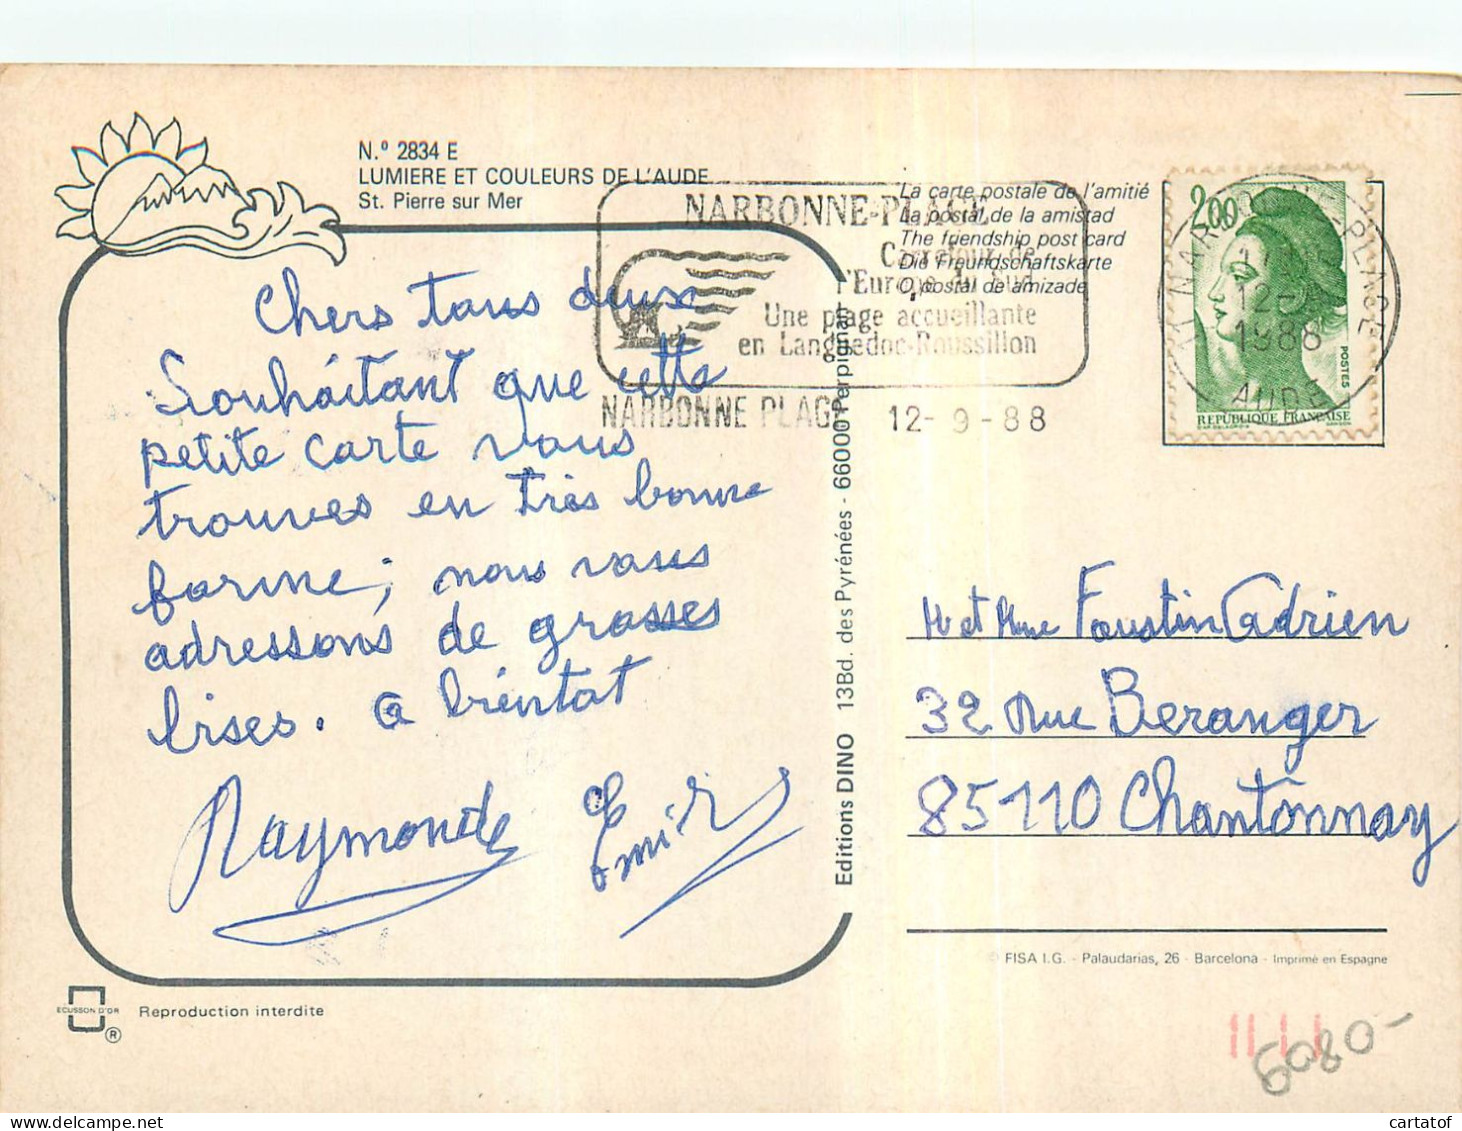 N.º 2834 E
LUMIERE ET COULEURS DE L'AUDE
St. Pierre sur Mer
Chers tous deux
Souhaitant que cette
petite carte vous
trouves en très bonne
forme; nous vous
adressons de grosses
bises. a bientot
Raymonde Emile
ECUSSON D'OR
®
Reproduction interdite
Editions DINO 13Bd. des Pyrénées - 66000 Perpignan
NARBONNE-PLAGE
Carrefour de
l'Europe du Sud
Une plage accueillante
en Languedoc-Roussillon
NARBONNE PLAGE 12-9-88
La carte postale de l'amitié
La postal de la amistad
The friendship post card
Die Freundschaftskarte
O postal de amizade
2,00
POSTES
REPUBLIQUE FRANÇAISE
11 NARBONNE-PLAGE
12-9
1988
AUDE
Mr et Mme Faustin Adrien
32 Rue Beranger
85110 Chantonnay
© FISA I.G. - Palaudarias, 26 - Barcelona - Imprimé en Espagne
6080-
cartatof